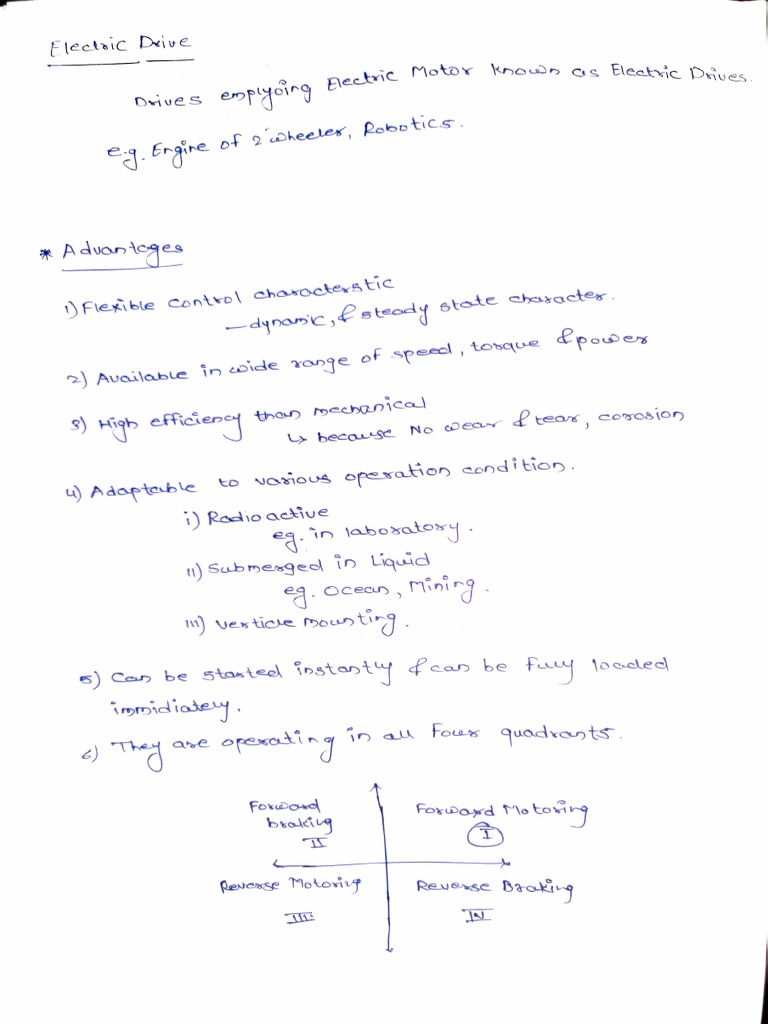 Electric Drive
Drives emplyoing Electric Motor known as Electric Drives.
e.g. Engine of 2 wheeler, Robotics.
* Advantages
1) Flexible control characterstic
– dynamic, & steady state character.
2) Available in wide range of speed, torque & power
3) High efficiency than mechanical
↳ because No wear & tear, corosion
4) Adaptable to various operation condition.
i) Radio active
eg. in laboratory.
ii) Submerged in Liquid
eg. Ocean, Mining.
iii) verticle mounting.
5) Can be started instantly & can be fully loaded
immidiately.
6) They are operating in all four quadrants.
Forward braking II
Forward Motoring I
Reverse Motoring III
Reverse Braking IV